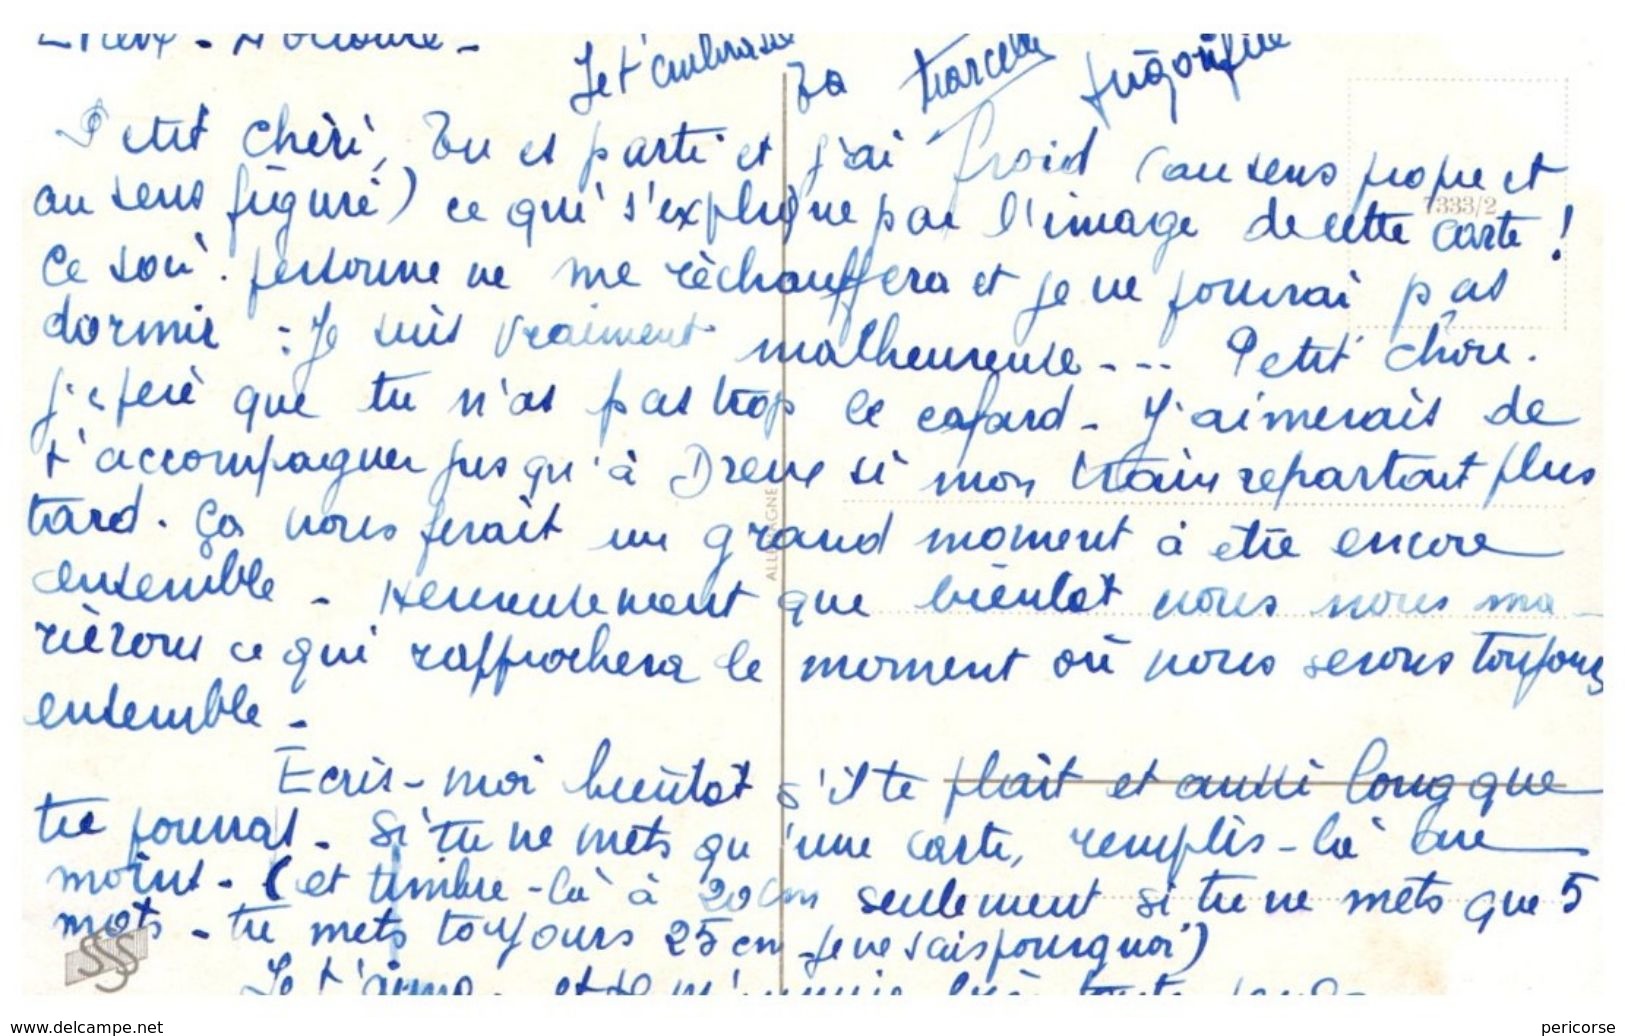 Je t'embrasse
Ta Marcelle frigorifiée
Petit chéri, Tu es parti et j'ai froid (au sens propre et
au sens figuré) ce qui s'explique par l'image de cette carte !
7333/2
Ce soir personne ne me réchauffera et je ne pourrai pas
dormir : Je suis vraiment malheureuse --- Petit chou.
j'espère que tu n'as pas trop le cafard - J'aimerais de
t'accompagner jusqu'à Dreux si mon train repartait plus
tard. Ça nous ferait un grand moment à être encore
ensemble - Heureusement que bientôt nous nous ma-
rierons ce qui rapprochera le moment où nous serons toujours
ensemble -
ALLEMAGNE
Ecris-moi bientôt s'il te plait et aussi long que
tu pourras - Si tu ne mets qu'une carte, remplis-là au
moins - (et timbre-là à 20 cm seulement si tu ne mets que 5
mots - tu mets toujours 25 cm - je ne sais pourquoi)
SSS
Je t'aime - et je m'ennuie
www.delcampe.net
pericorse